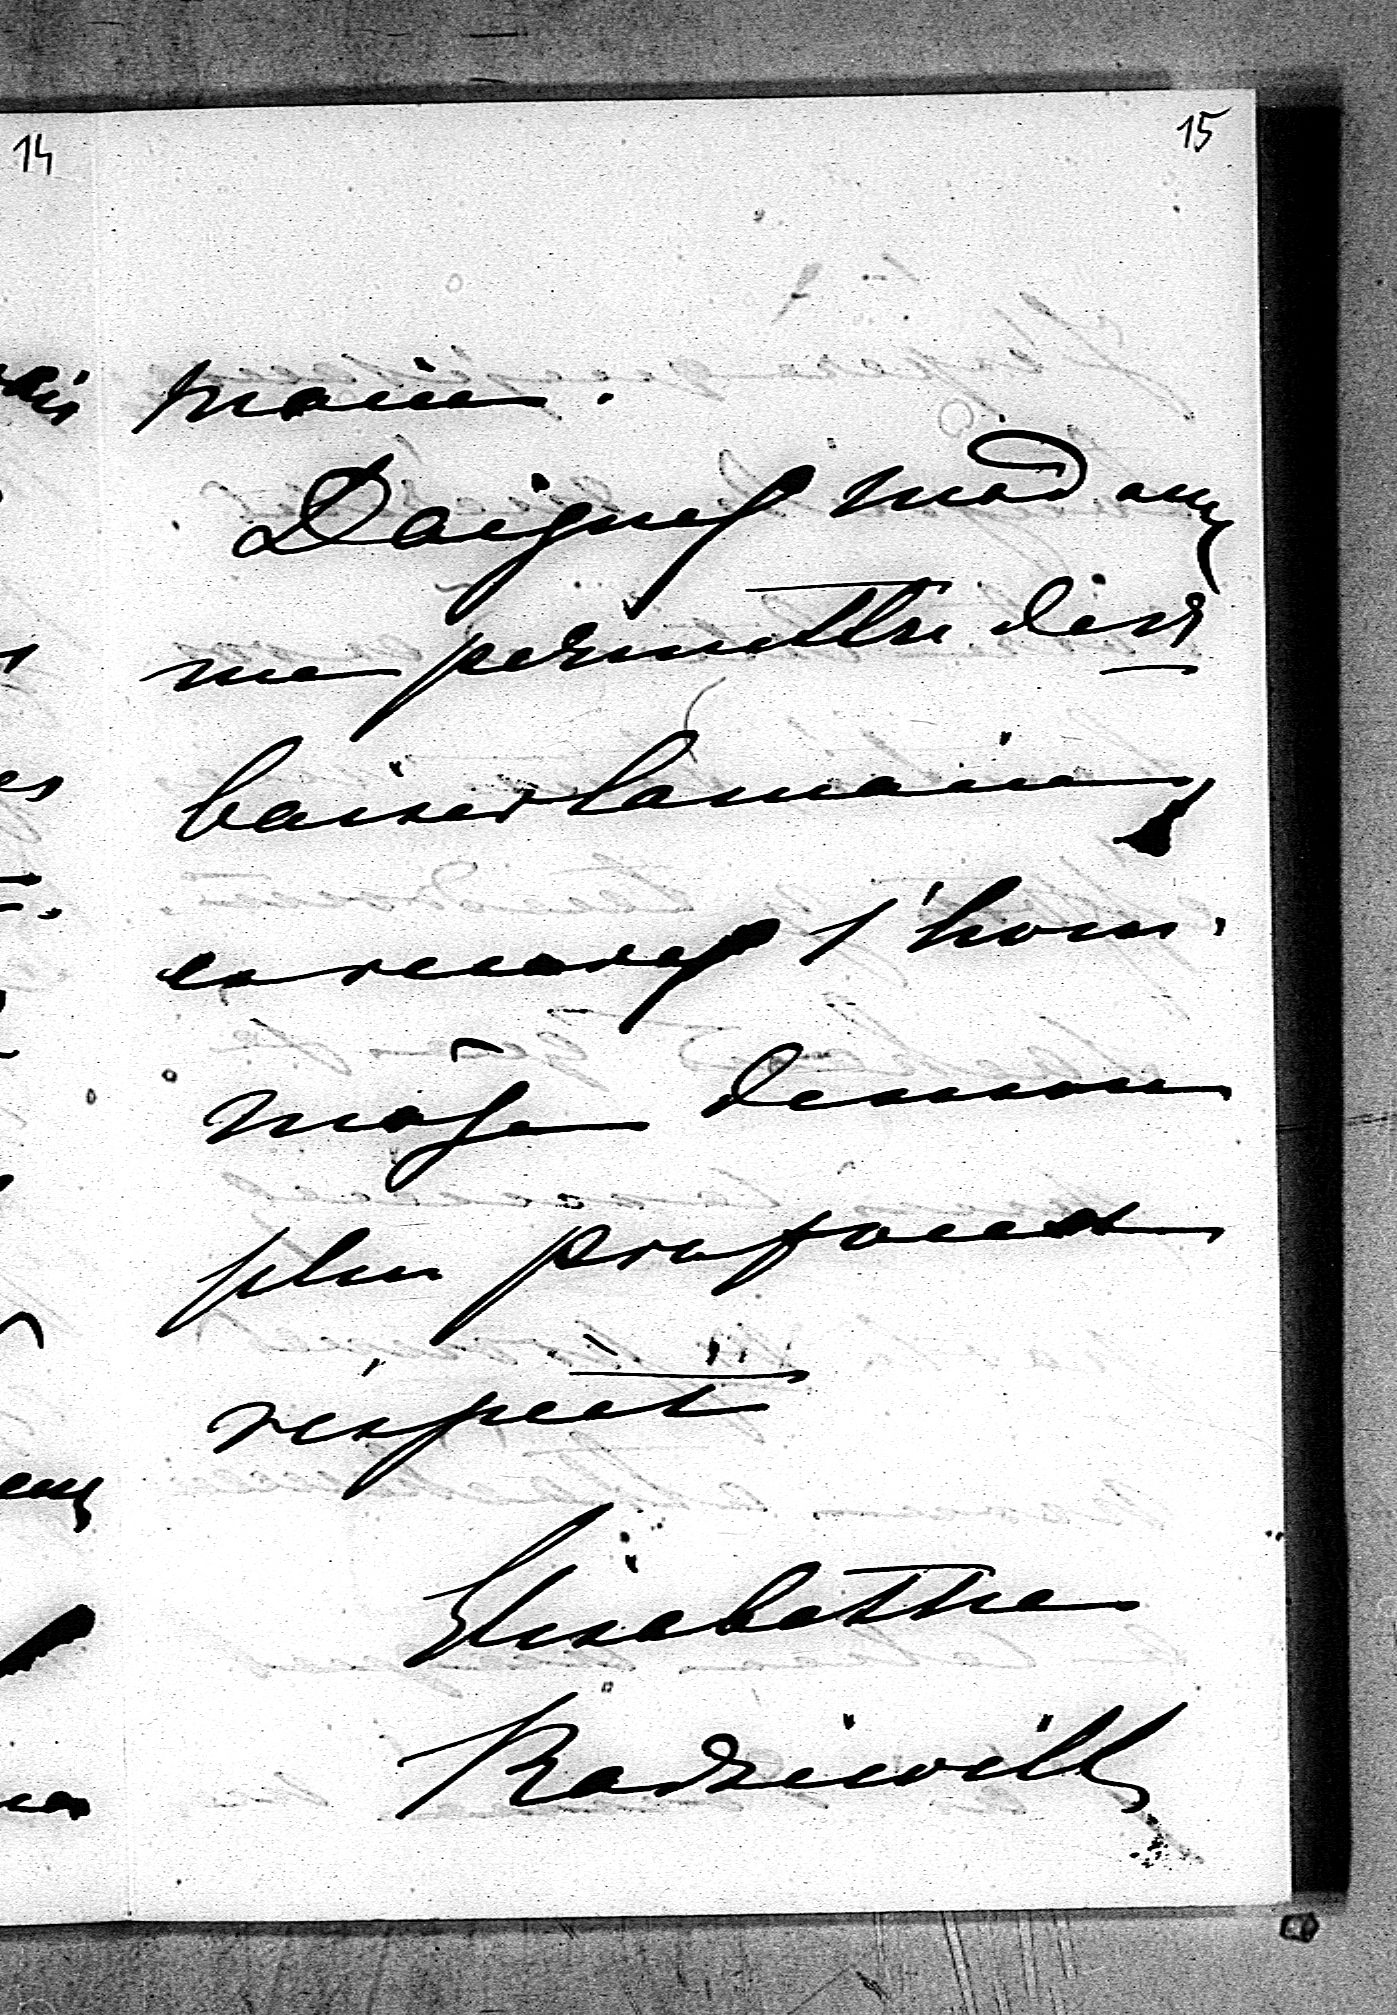 14
15
main.
Daignez madame
me permettre de v.
baiser la main
et recevez l'hom-
mage de mon
plus profond
respect
Elisabethe
Radziwill